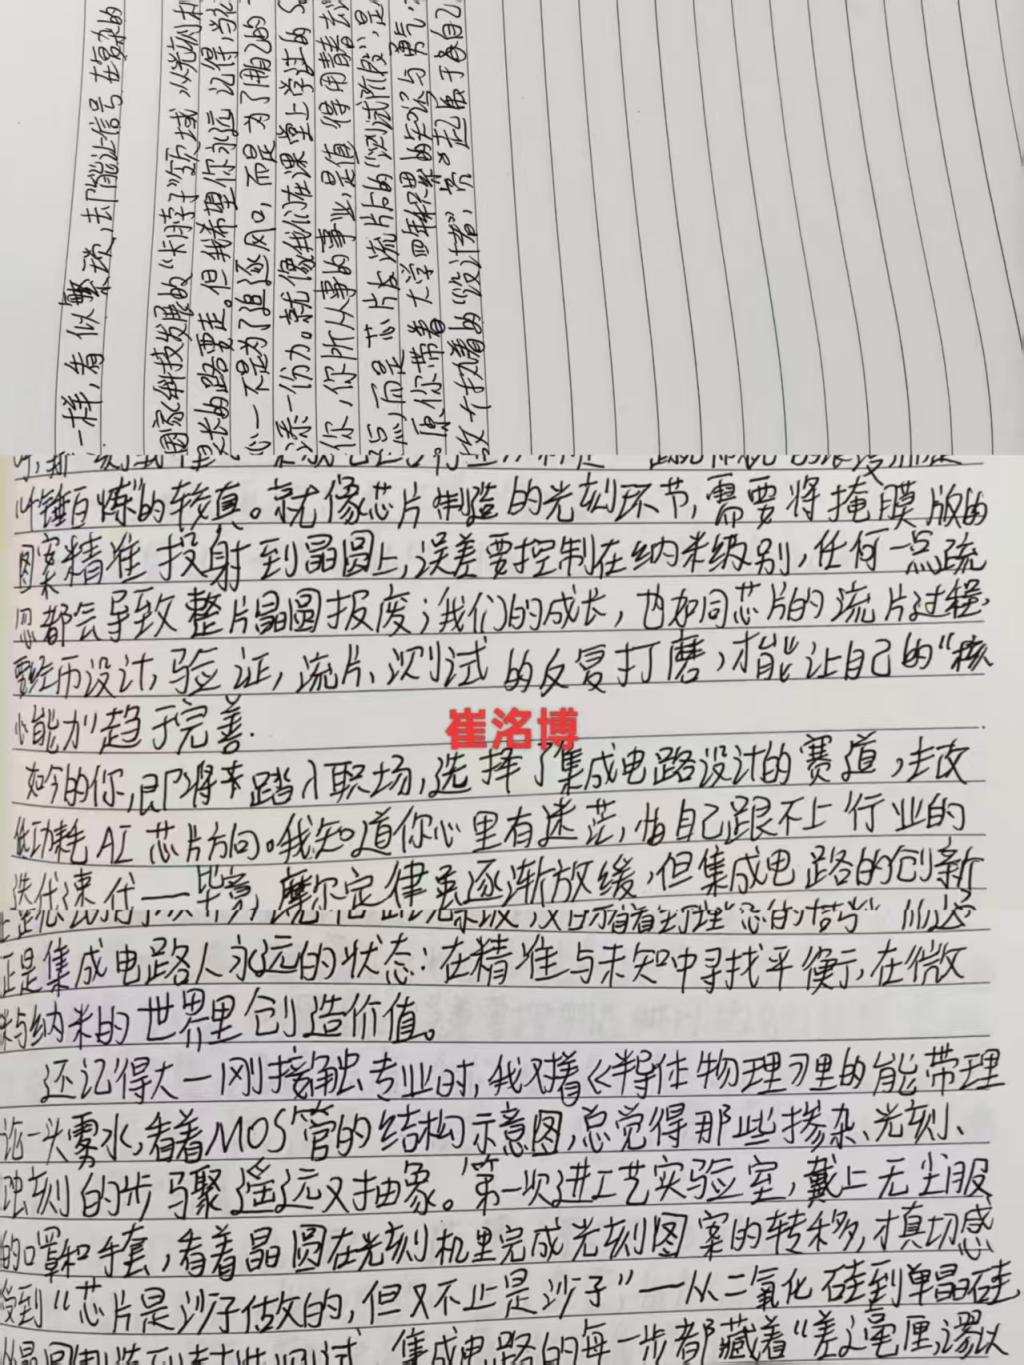 一样，看似繁琐，却能让信号在复杂的
国家科技发展的“卡脖子”领域，从光刻机
长的路要走。但我希望你永远记得，当初
心一不是为了追逐风口，而是为了
添一份力。就像我们在课堂上学过的
你，你所从事的事业，是值得用青春去
点，而是芯片从流片的“测试阶段”，是
愿你带着大学四年积累的知识与勇气，
做一个执着的“设计者”，
锤百炼”的较真。就像芯片制造的光刻环节，需要将掩膜版的
图案精准投射到晶圆上，误差要控制在纳米级别，任何一点疏
忽都会导致整片晶圆报废；我们的成长，也如同芯片的流片过程，
要经历设计，验证，流片、测试的反复打磨，才能让自己的“核
心能力”趋于完善.
崔洺博
如今的你，即将来踏入职场，选择了集成电路设计的赛道，去改
低功耗AI芯片方向。我知道你心里有迷茫，怕自己跟不上行业的
迭代速代一毕竟，摩尔定律虽逐渐放缓，但集成电路的创新
正是集成电路人永远的状态：在精准与未知中寻找平衡，在微
米与纳米的世界里创造价值。
还记得大一刚接触专业时，我对着《半导体物理》里的能带理
论一头雾水，看着MOS管的结构示意图，总觉得那些掺杂、光刻、
蚀刻的步骤遥远又抽象。第一次进工艺实验室，戴上无尘服
的口罩和手套，看着晶圆在光刻机里完成光刻图案的转移，才真切感
受到“芯片是沙子做的，但又不止是沙子”一从二氧化硅到单晶硅
集成电路的每一步都藏着“差之毫厘，谬以